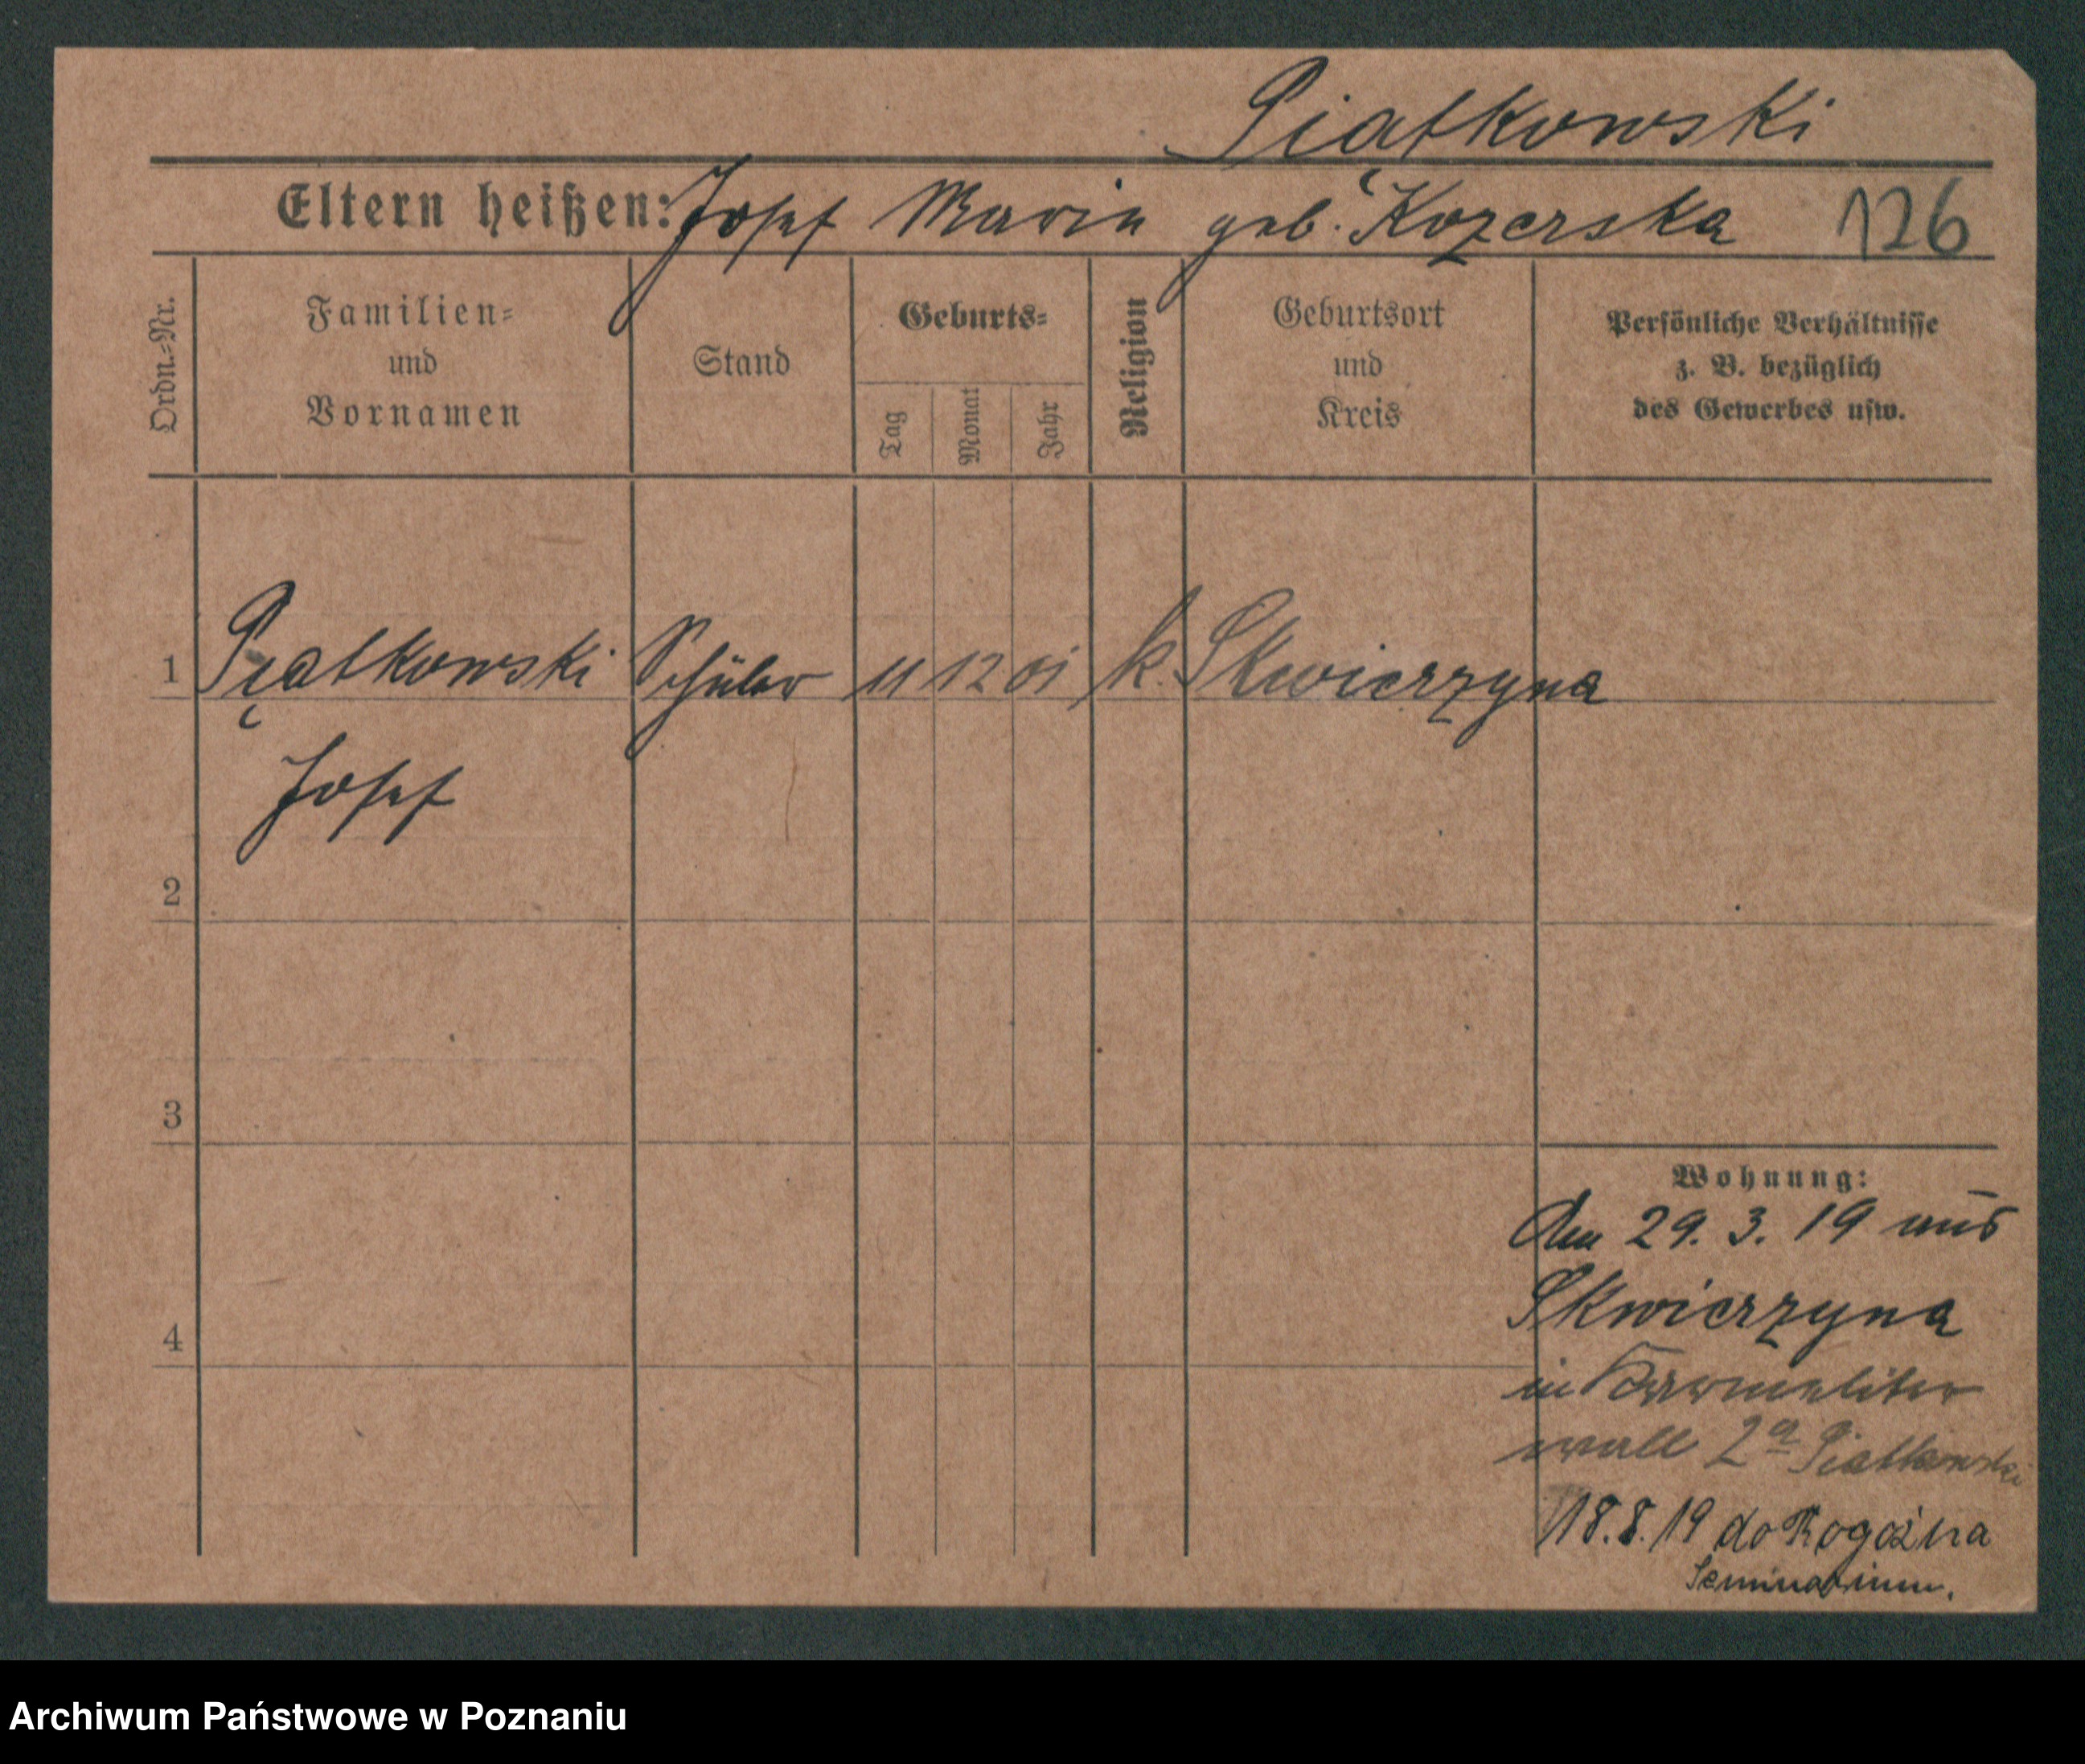 Piątkowski
Eltern heißen: Josef Marie geb. Kozerska 126
Ordn.=Nr.
Familien=
und
Vornamen
Stand
Geburts=
Tag
Monat
Jahr
Religion
Geburtsort
und
Kreis
Persönliche Verhältnisse
z. B. bezüglich
des Gewerbes usw.
1 Piątkowski Schüler 11 12 01 k. Skwierzyna
Josef
2
3
4
Wohnung:
Am 29. 3. 19 aus
Skwierzyna
in Karmeliter
wall 2a Piatkowski
18.8.19 do Rogoźna
Seminarium.
Archiwum Państwowe w Poznaniu